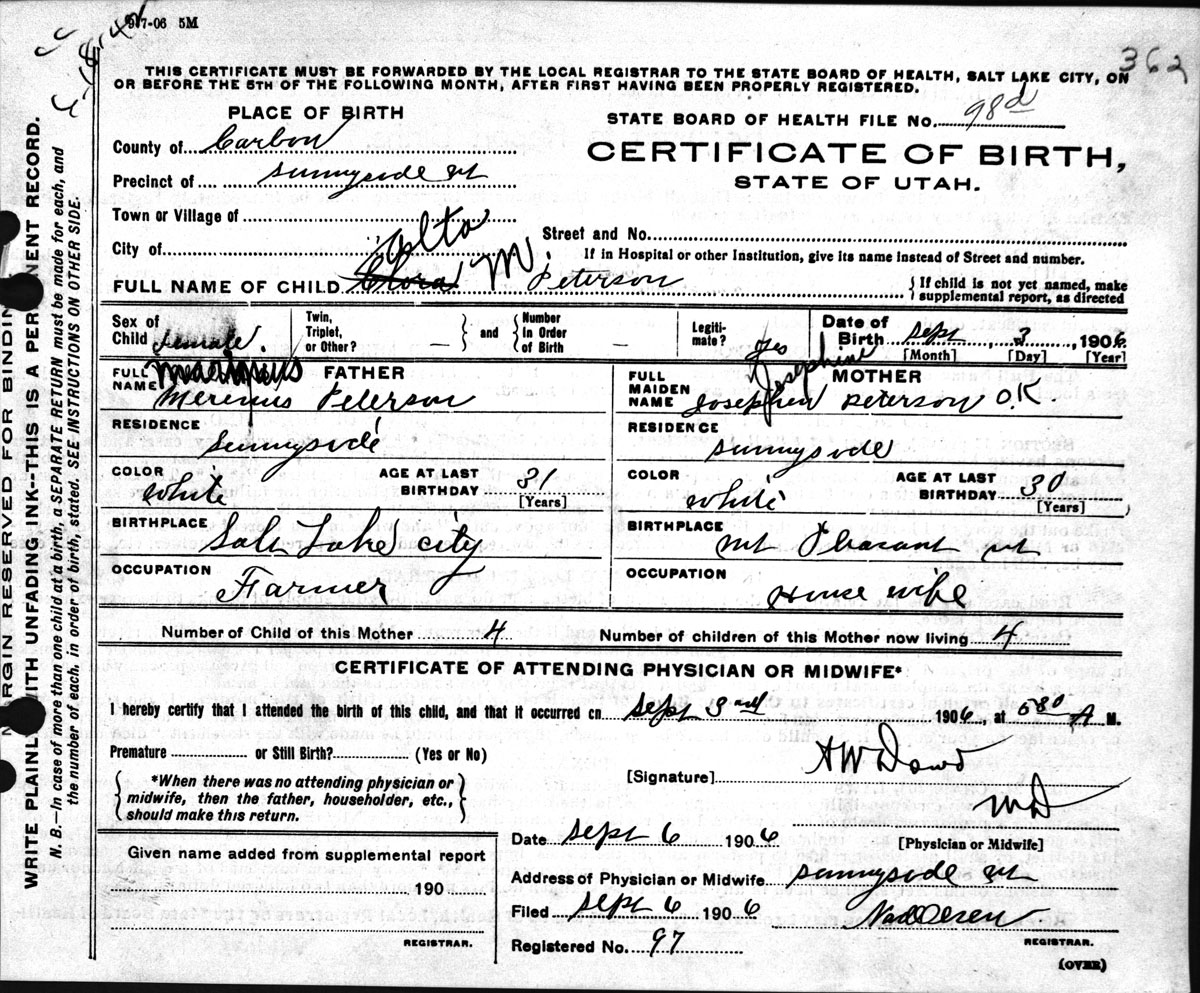 9-7-06 5M
362
THIS CERTIFICATE MUST BE FORWARDED BY THE LOCAL REGISTRAR TO THE STATE BOARD OF HEALTH, SALT LAKE CITY, ON
OR BEFORE THE 5TH OF THE FOLLOWING MONTH, AFTER FIRST HAVING BEEN PROPERLY REGISTERED.
PLACE OF BIRTH
County of Carbon
Precinct of Sunnyside ut
Town or Village of
City of
STATE BOARD OF HEALTH FILE No. 98d
CERTIFICATE OF BIRTH,
STATE OF UTAH.
Street and No.
If in Hospital or other Institution, give its name instead of Street and number.
Alta
FULL NAME OF CHILD Clora M. Peterson
{ If child is not yet named, make
supplemental report, as directed
Sex of
Child Female.
Twin,
Triplet,
or Other? — } and { Number
in Order
of Birth —
Legiti-
mate? yes
Date of
Birth Sept, 3, 1906
[Month] [Day] [Year]
FATHER
FULL
NAME Merenius Peterson
RESIDENCE
Sunnyside
COLOR
White
AGE AT LAST
BIRTHDAY 31
[Years]
BIRTHPLACE
Salt Lake city
OCCUPATION
Farmer
MOTHER
Josephine
FULL
MAIDEN
NAME Josephen Peterson O.K
RESIDENCE
Sunnyside
COLOR
White
AGE AT LAST
BIRTHDAY 30
[Years]
BIRTHPLACE
Mt Pleasant ut
OCCUPATION
House wife
Number of Child of this Mother 4 Number of children of this Mother now living 4
CERTIFICATE OF ATTENDING PHYSICIAN OR MIDWIFE*
I hereby certify that I attended the birth of this child, and that it occurred on Sept 3rd 1906 at 530 A M.
Premature or Still Birth? (Yes or No)
{ *When there was no attending physician or
midwife, then the father, householder, etc.,
should make this return. }
[Signature] A W Dowd
MD
[Physician or Midwife]
Date Sept 6 1906
Address of Physician or Midwife Sunnyside ut
Filed Sept 6 1906
REGISTRAR.
Registered No. 97
(OVER)
Given name added from supplemental report
190
REGISTRAR.
MARGIN RESERVED FOR BINDING
WRITE PLAINLY WITH UNFADING INK--THIS IS A PERMANENT RECORD.
N. B.—In case of more than one child at a birth, a SEPARATE RETURN must be made for each, and
the number of each, in order of birth, stated. SEE INSTRUCTIONS ON OTHER SIDE.